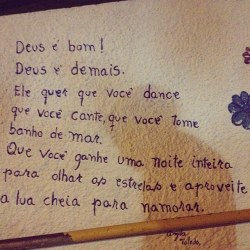 Deus é bom!
Deus é demais.
Ele quer que você dance
que você cante, que você tome
banho de mar.
Que você ganhe uma noite inteira
para olhar as estrelas e aproveite
a lua cheia para namorar.